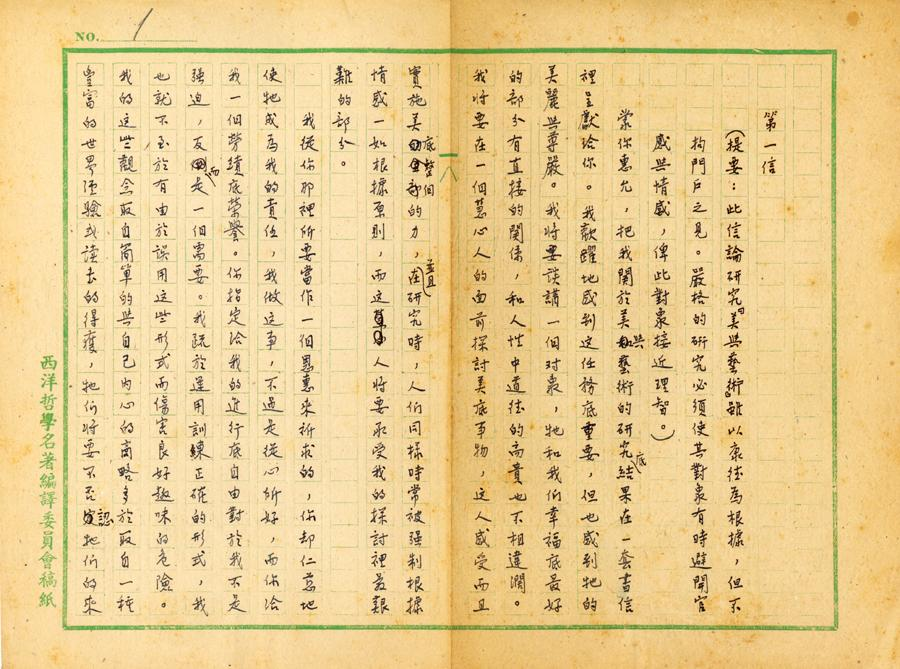 NO. 1
第一信
(提要：此信論研究的美與藝術雖以康德為根據，但不
拘門戶之見。嚴格的研究必須使其對象有時避開官
感與情感，俾此對象接近理智。)
蒙你惠允，把我關於美與藝術的研究底結果在一套書信
裡呈獻給你。我歡躍地感到這任務底重要，但也感到牠的
美麗與尊嚴。我將要談講一個對象，牠和我们幸福底最好
的部分有直接的關係，和人性中道德的高貴也不相違濶。
我將要在一個慧心人的面前探討美底事物，這人感受而且
實施美底整個的力，並且在研究時，人们同樣時常被强制根據
情感一如根據原則，而這人將要承受我的探討裡最艱
難的部分。
我從你那裡所要當作一個恩惠來祈求的，你却仁慈地
使牠成為我的責任，我做這事，不過是從心所好，而你給
我一個勞績底榮譽。你指定給我的進行底自由對於我不是
强迫，反而是一個需要。我既於運用訓練正確的形式，我
也就不至於有由於誤用這些形式而傷害良好趣味的危險。
我的這些觀念取自簡單的與自己內心的商略多於取自一種
豐富的世界經驗或讀去的得獲，牠们將要不否認牠们的來
西洋哲學名著編譯委員會稿紙